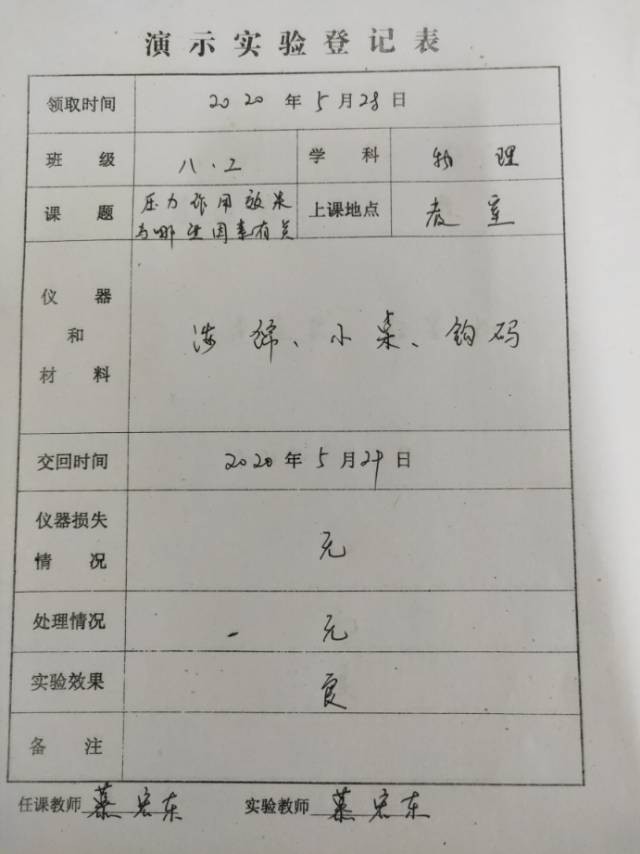 演示实验登记表
领取时间 2020年5月28日
班级 八.2 学科 物理
课题 压力作用效果 上课地点 教室
与哪些因素有关
仪器
和 海绵、小桌、钩码
材料
交回时间 2020年5月29日
仪器损失
情况 无
处理情况 无
实验效果 良
备注
任课教师 慕宏东 实验教师 慕宏东